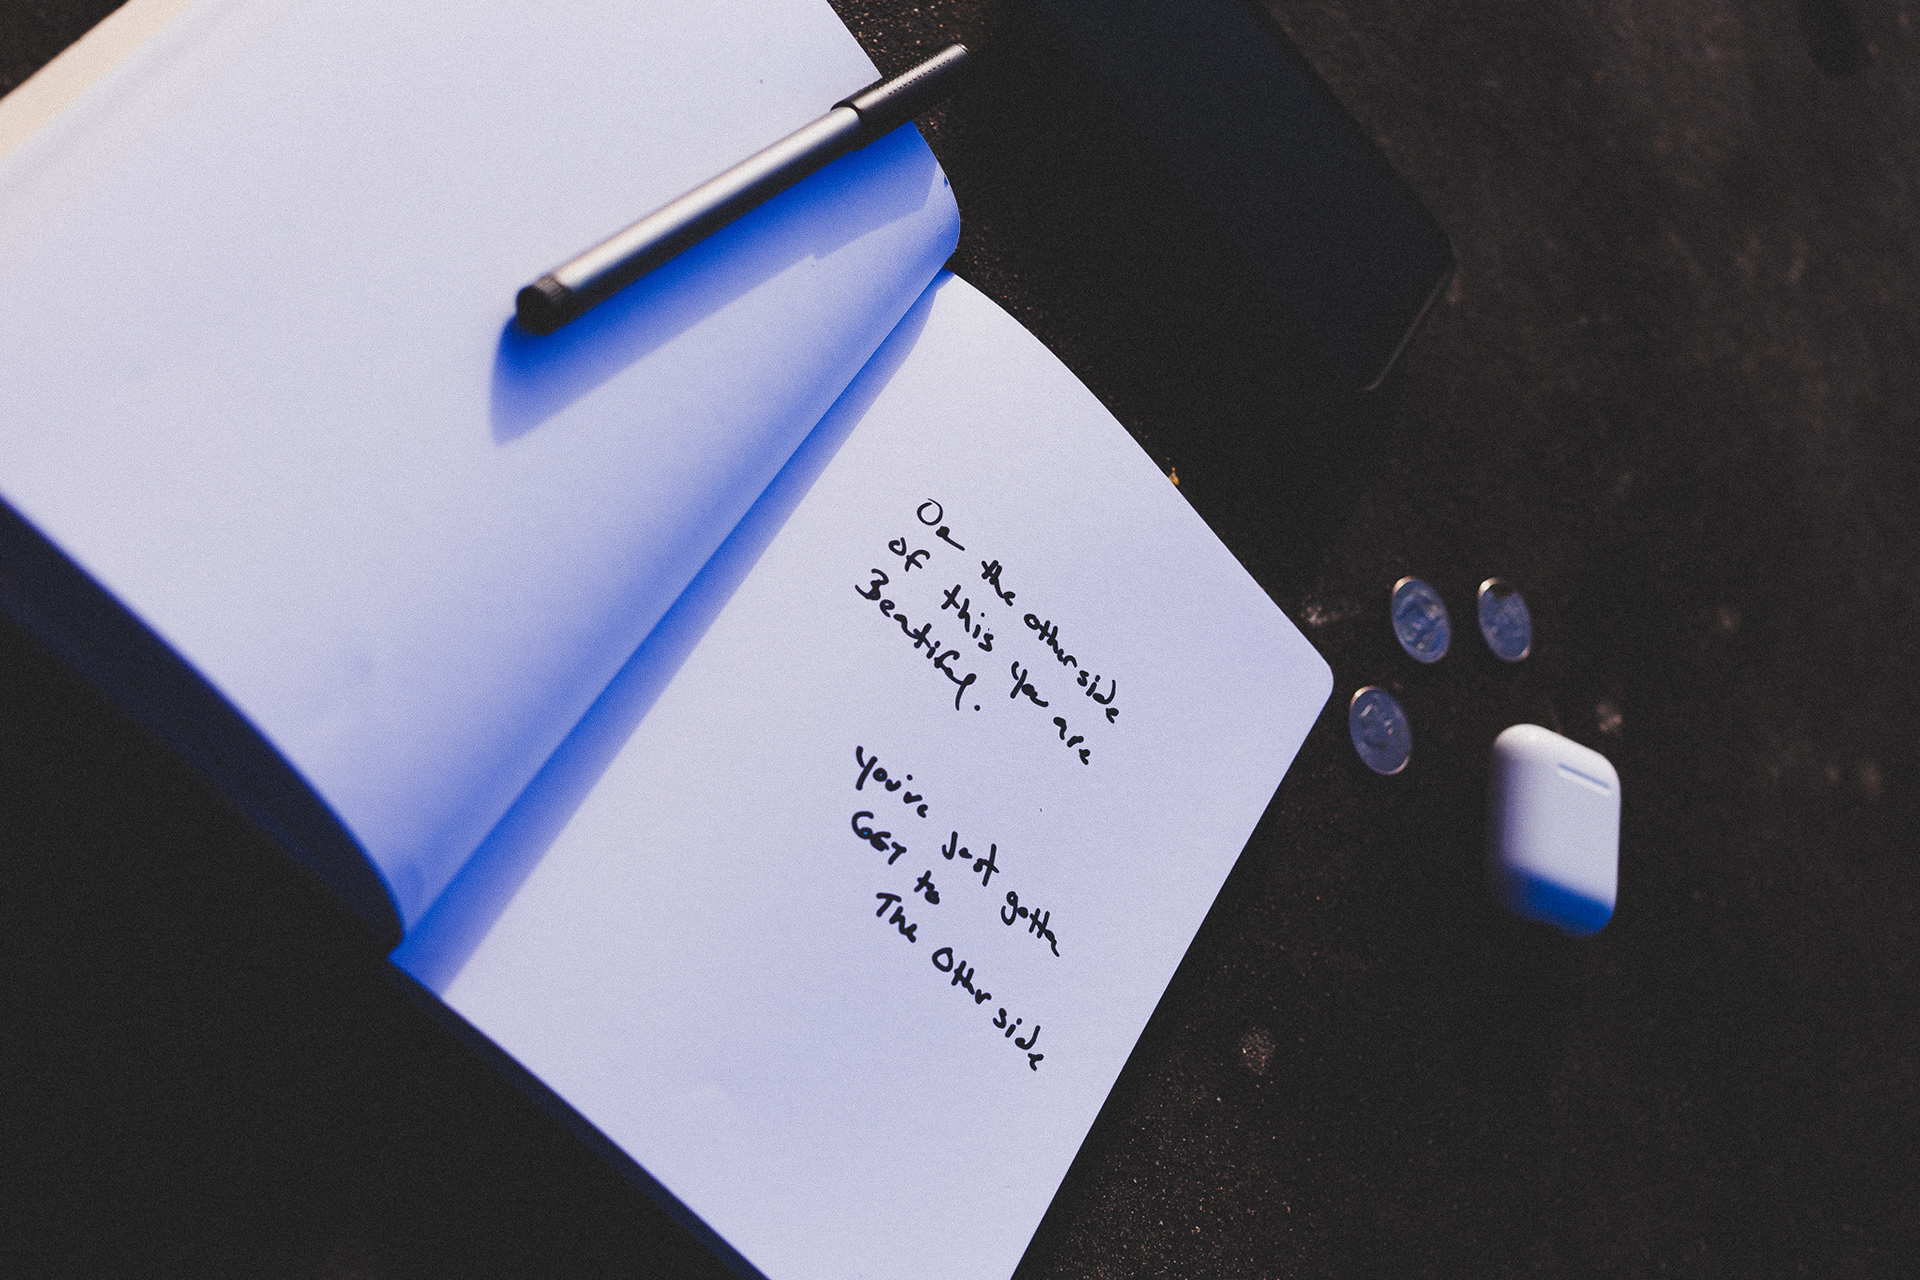 On the otherside
of this you are
Beautiful.
You've Just gotta
GET to
The Other side